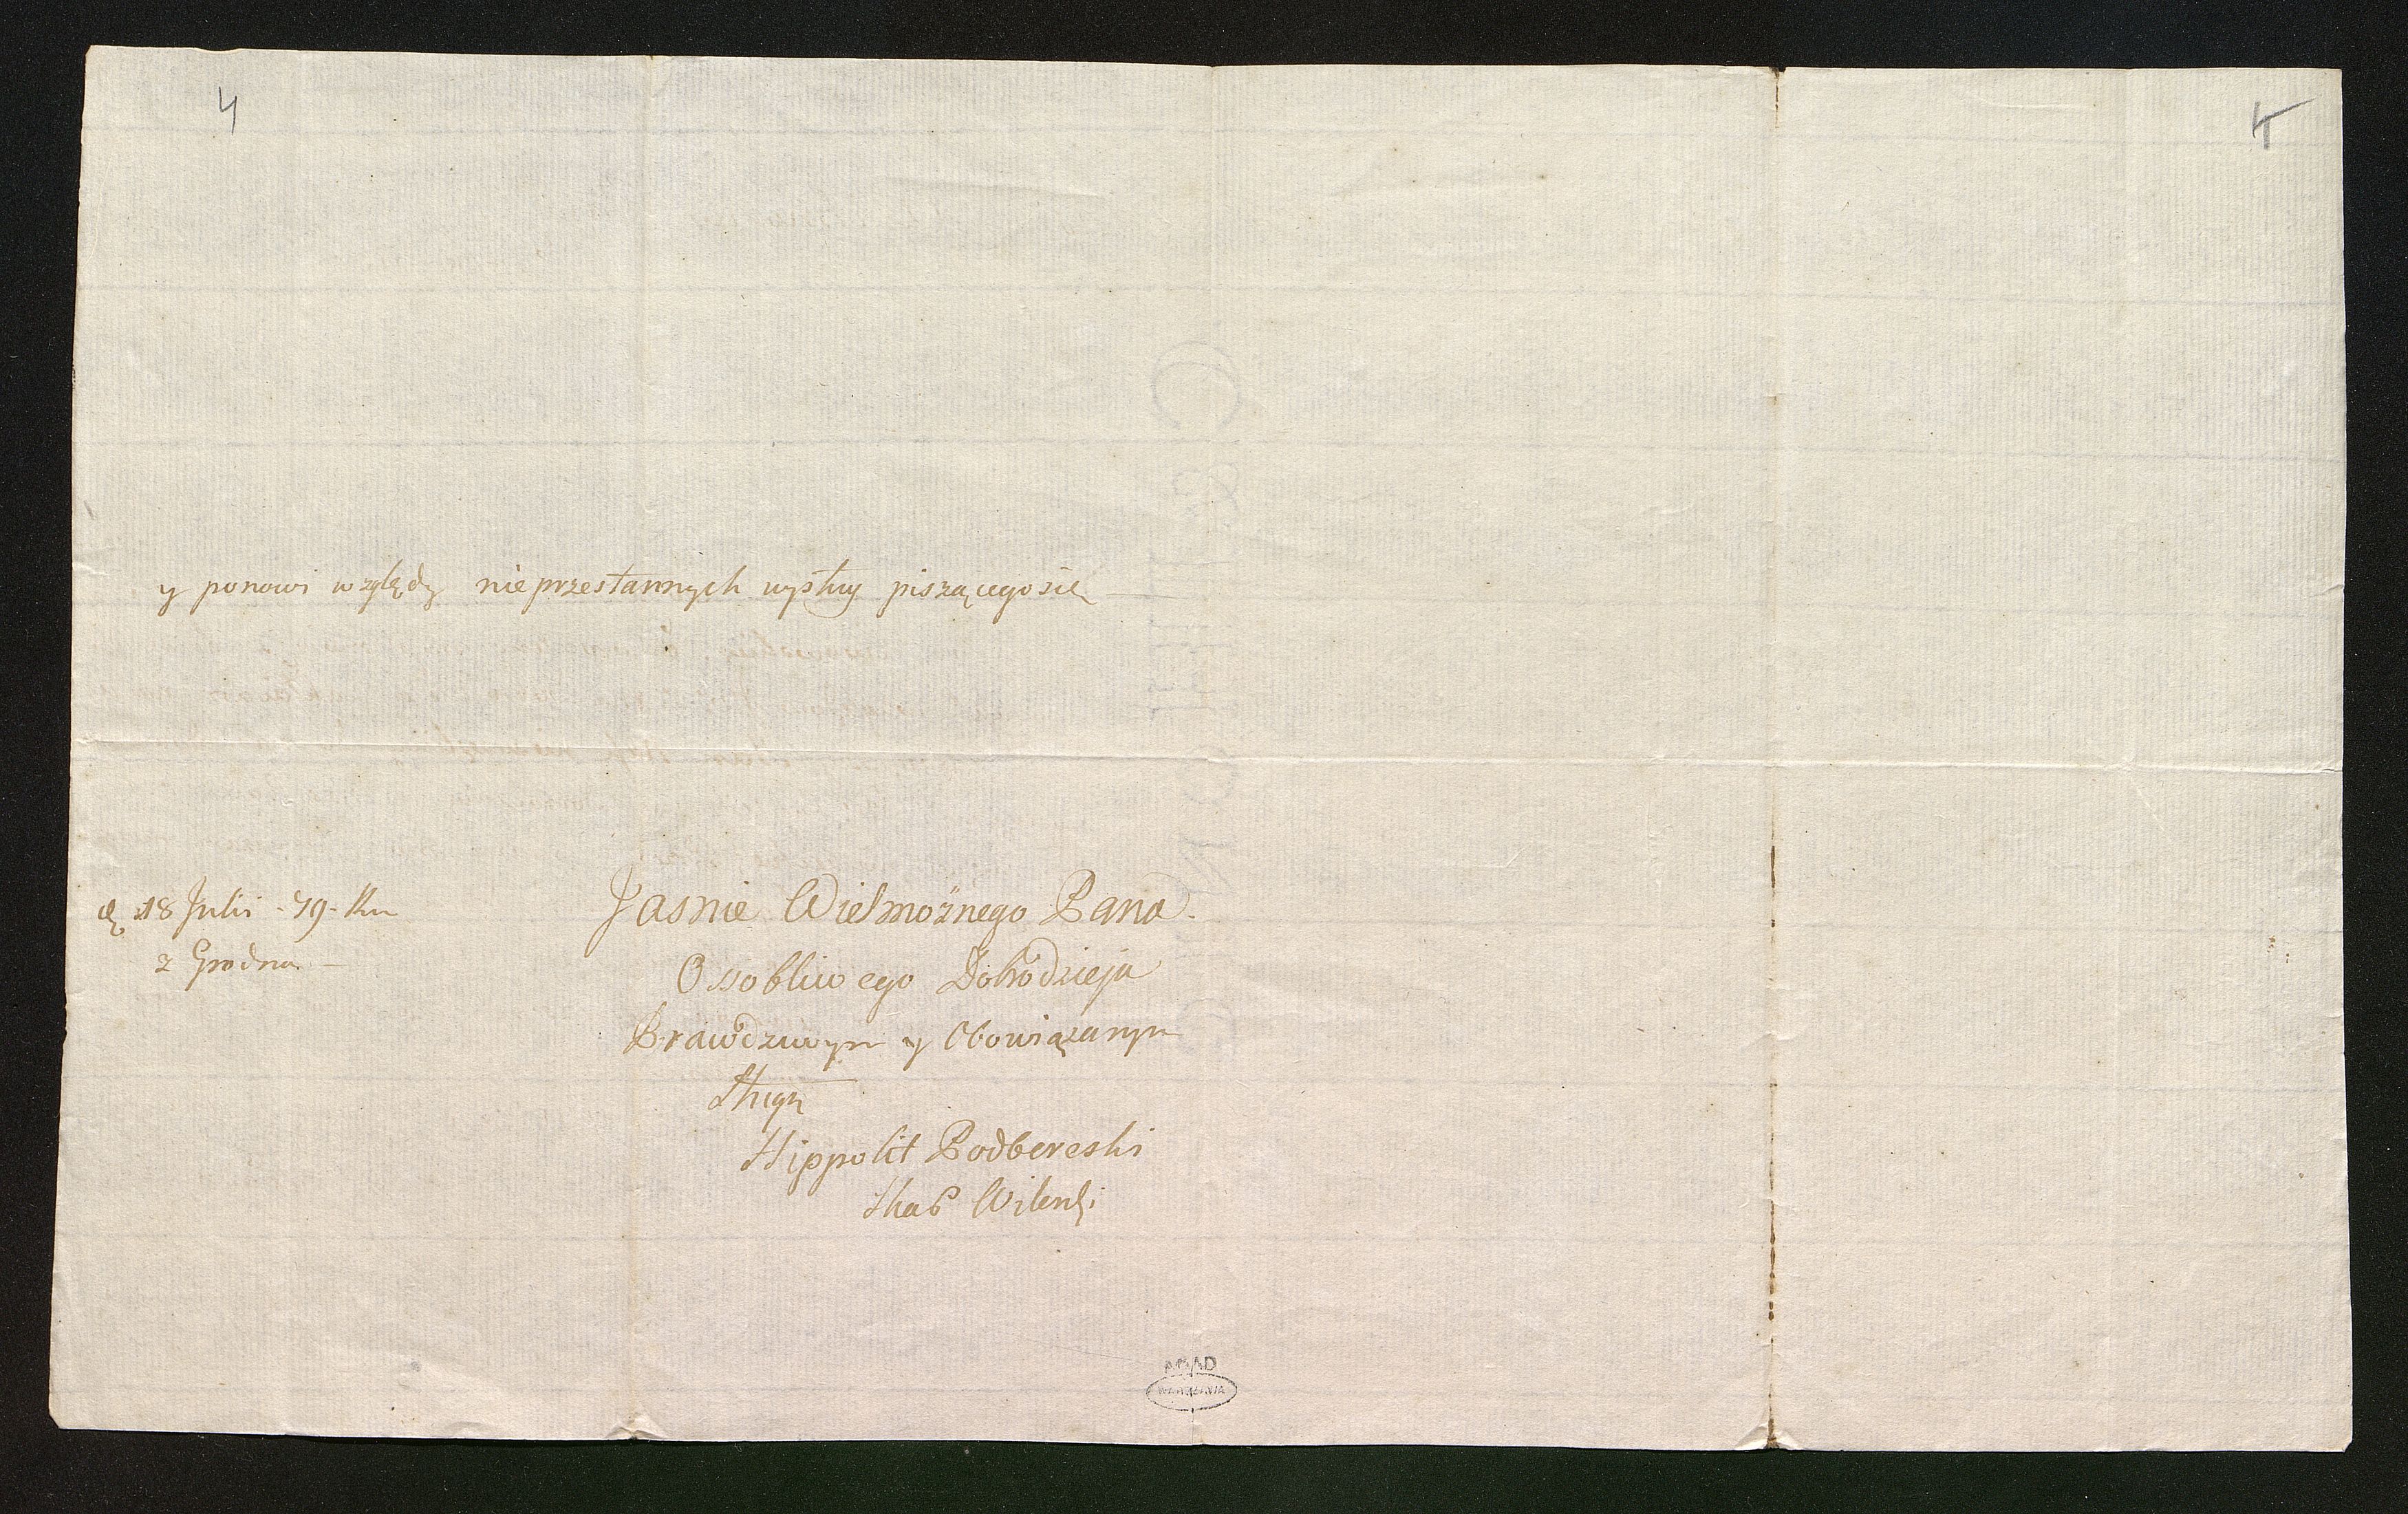 4
4
y ponowi względy nieprzestannych wysług piszącego się
d 18 Julii - 79 - Ru
z Grodna -
Jasnie Wielmożnego Pana
Ossobliwego Dobrodzieja
Prawdziwym y Obowiązanym
Sługą
Hippolit Podbereski
Skar Wilenski
ADAD
WARSZAWA